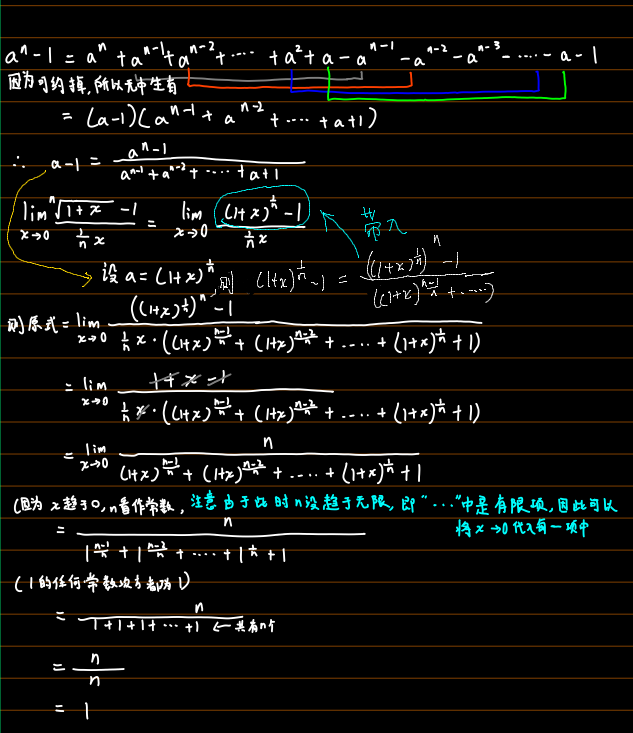 aⁿ-1 = aⁿ + aⁿ⁻¹ + aⁿ⁻² + ····· + a² + a - aⁿ⁻¹ - aⁿ⁻² - aⁿ⁻³ - ····· - a - 1
因为可约掉,所以无中生有
= (a-1)(aⁿ⁻¹ + aⁿ⁻² + ···· + a+1)
∴ a-1 = (aⁿ-1)/(aⁿ⁻¹+aⁿ⁻²+ ····· + a+1)
lim x→0 (ⁿ√(1+x) -1)/(1/n x) = lim x→0 ((1+x)^(1/n) -1)/(1/n x)
带入
设 a = (1+x)^(1/n),则 (1+x)^(1/n) -1 = (((1+x)^(1/n))^n -1)/((1+x)^((n-1)/n) + ·····)
则原式 = lim x→0 (((1+x)^(1/n))^n -1)/(1/n x·((1+x)^((n-1)/n) + (1+x)^((n-2)/n) + ···· + (1+x)^(1/n) +1))
= lim x→0 (1+x-1)/(1/n x·((1+x)^((n-1)/n) + (1+x)^((n-2)/n) + ···· + (1+x)^(1/n) +1))
= lim x→0 n/((1+x)^((n-1)/n) + (1+x)^((n-2)/n) + ···· + (1+x)^(1/n) +1)
(因为 x趋于0,n看作常数,注意由于此时n没趋于无限,即“···”中是有限项,因此可以
将x→0代入每一项中
= n/(1^((n-1)/n) + 1^((n-2)/n) + ····· + 1^(1/n) + 1)
(1的任何常数次方都为1)
= n/(1+1+1+ ··· +1) ← 共有n个
= n/n
= 1